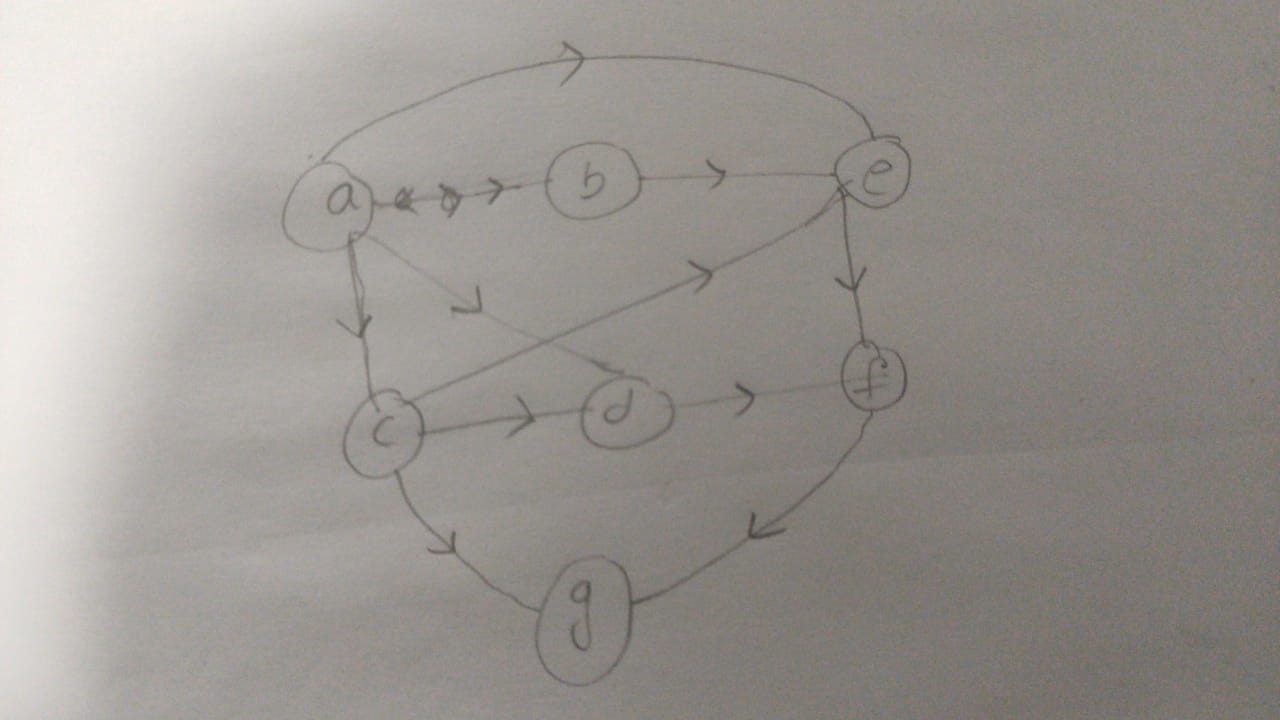 a b e
c d f
g